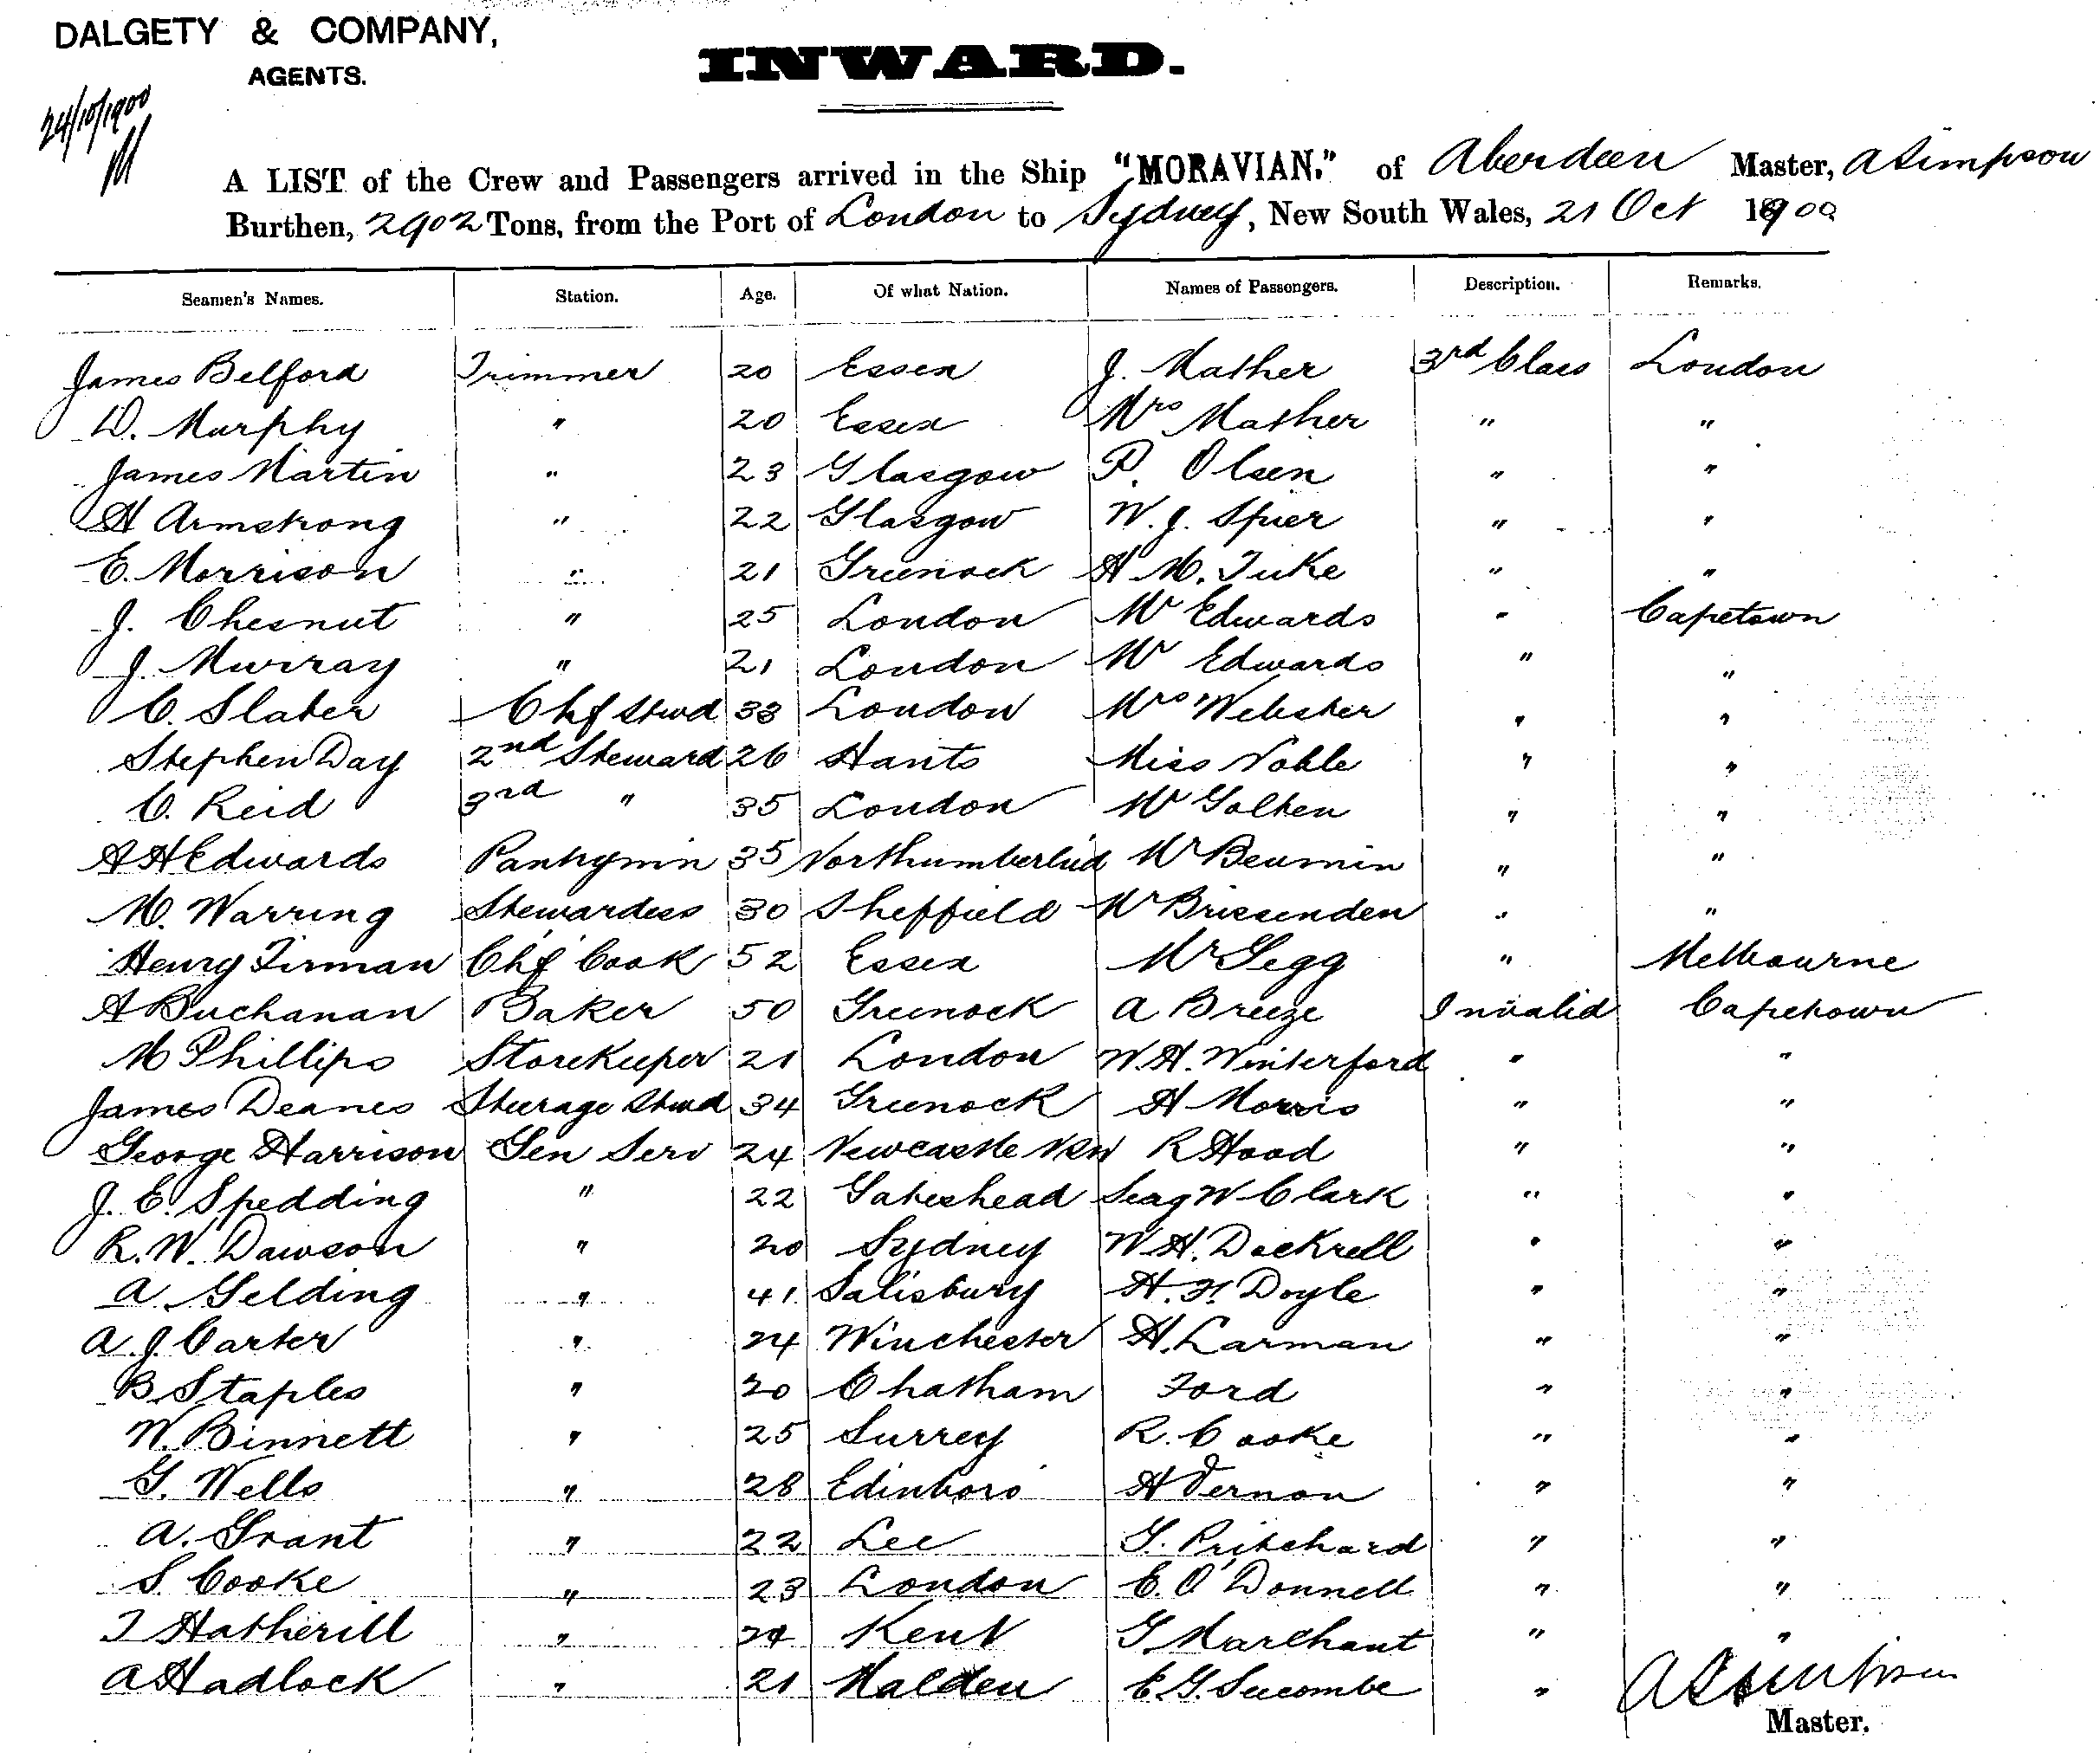 DALGETY & COMPANY,
AGENTS.
INWARD.
24/10/1900
A LIST of the Crew and Passengers arrived in the Ship "MORAVIAN." of Aberdeen Master, A Simpson
Burthen, 2902 Tons, from the Port of London to Sydney, New South Wales, 21 Oct 1900
Seamen's Names. Station. Age. Of what Nation. Names of Passengers. Description. Remarks.
James Belford Trimmer 20 Essex J. Mather 3rd Class London
D. Murphy " 20 Essex Mrs Mather " "
James Martin " 23 Glasgow P. Olsen " "
H Armstrong " 22 Glasgow W. J. Spier " "
E. Morrison " 21 Greenock H M. Tuke " "
J. Chesnut " 25 London Mr Edwards " Capetown
J. Murray " 21 London Mr Edwards " "
C. Slater Chf Stwd 33 London Mrs Webster " "
Stephen Day 2nd Steward 26 Hants Miss Noble " "
C. Reid 3rd " 35 London Mr Golten " "
A H Edwards Pantrymn 35 Northumberlnd Mr Beumin " "
M. Warring Stewardess 30 Sheffield Mr Brissenden " "
Henry Firman Chf Cook 52 Essex Mr Legg " Melbourne
A Buchanan Baker 50 Greenock A Breeze Invalid Capetown
M Phillips Storekeeper 21 London W. H. Winterford " "
James Deanes Steerage Stwd 34 Greenock H Morris " "
George Harrison Gen Serv 24 Newcastle NSW R Hood " "
J. E. Spedding " 22 Gateshead Seag W Clark " "
R. W. Dawson " 20 Sydney W H. Dockrell " "
A. Gelding " 41 Salisbury H. F. Doyle " "
A. J. Carter " 24 Winchester H. Larman " "
B. Staples " 20 Chatham Ford " "
W. Binnett " 25 Surrey R. Cooke " "
G. Wells " 28 Edinboro H Vernon " "
A. Grant " 22 Lee G. Pritchard " "
S. Cooke " 23 London C. O'Donnell " "
T Hatherill " 24 Kent G Marchant " "
A Hadlock " 21 Malden E. G. Succombe " A Simpson
Master.